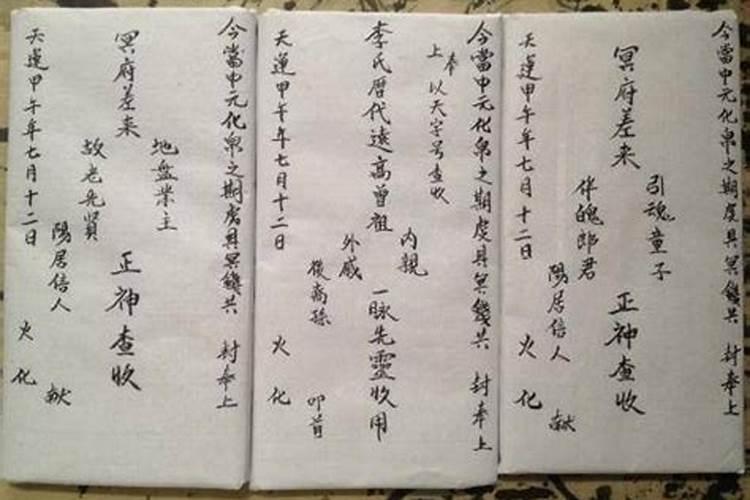 今當中元化帛之期虔具冥錢共 封奉上
引魂童子
冥府差来 正神查收
伴魄郎君
陽居信人 献
天運甲午年七月十二日 火化
今當中元化帛之期虔具冥錢共 封奉上
奉
上 以天字号查收
内親
李氏曆代遠高曾祖 一脉先靈收用
外戚
後裔孫 叩首
天運甲午年七月十二日 火化
今當中元化帛之期虔具冥錢共 封奉上
地盤業主
冥府差来 正神查收
故老先賢
陽居信人 献
天運甲午年七月十二日 火化